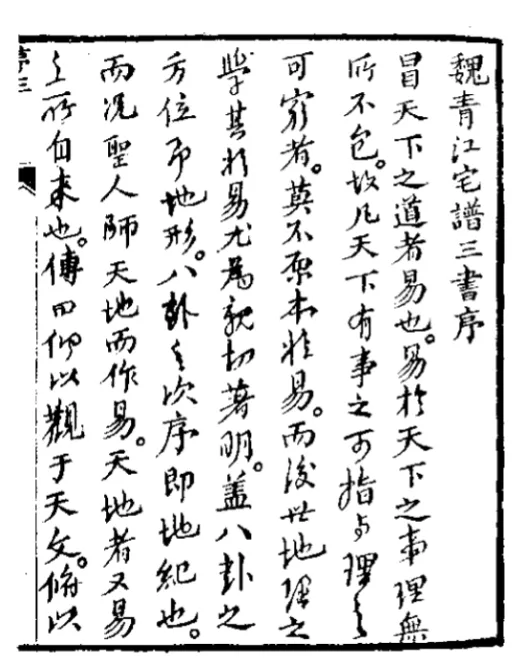 魏青江宅譜三書序
冒天下之道者易也。易於天下之事理無
所不包。故凡天下有事之可指与理之
可窮者。莫不原本於易。而後世地理之
學其於易尤為親切著明。蓋八卦之
方位即地形。八卦之次序即地紀也。
而况聖人師天地而作易。天地者又易
之所自来也。傳曰仰以觀于天文。俯以
序三